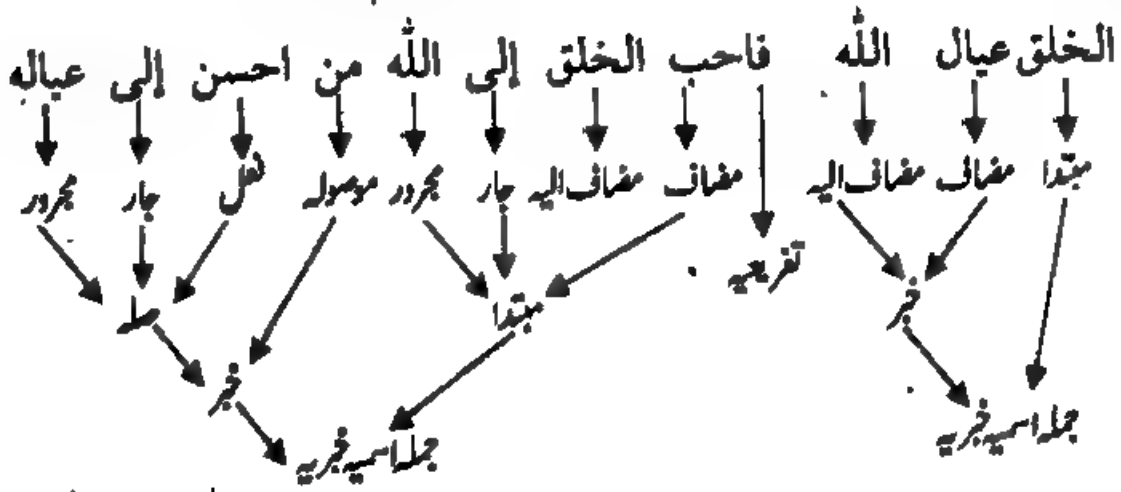 الخلق عيال الله فاحب الخلق إلى الله من احسن إلى عياله
مبتدا مضاف مضاف الیہ مضاف مضاف الیہ جار مجرور موصولہ فعل جار مجرور
تفریعیہ
خبر مبتدا صلہ
خبر
جملہ اسمیہ خبریہ جملہ اسمیہ خبریہ